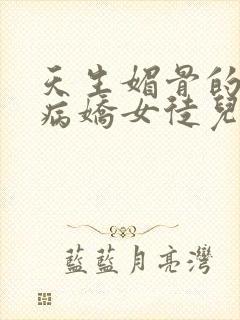 天生媚骨的
病嬌女徒兒
藍藍月亮灣